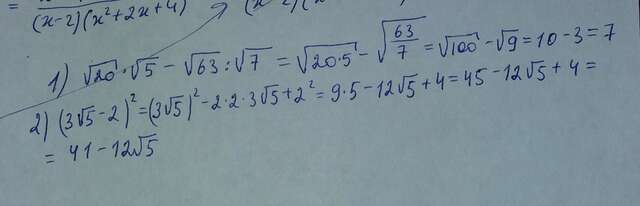 = (x-2)(x²+2x+4)
1) √20 · √5 - √63 : √7 = √(20·5) - √(63/7) = √100 - √9 = 10 - 3 = 7
2) (3√5 - 2)² = (3√5)² - 2·2·3√5 + 2² = 9·5 - 12√5 + 4 = 45 - 12√5 + 4 =
= 41 - 12√5